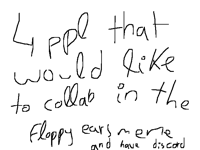 4 ppl that
would like
to collab in the
Floppy ears meme
and have discord